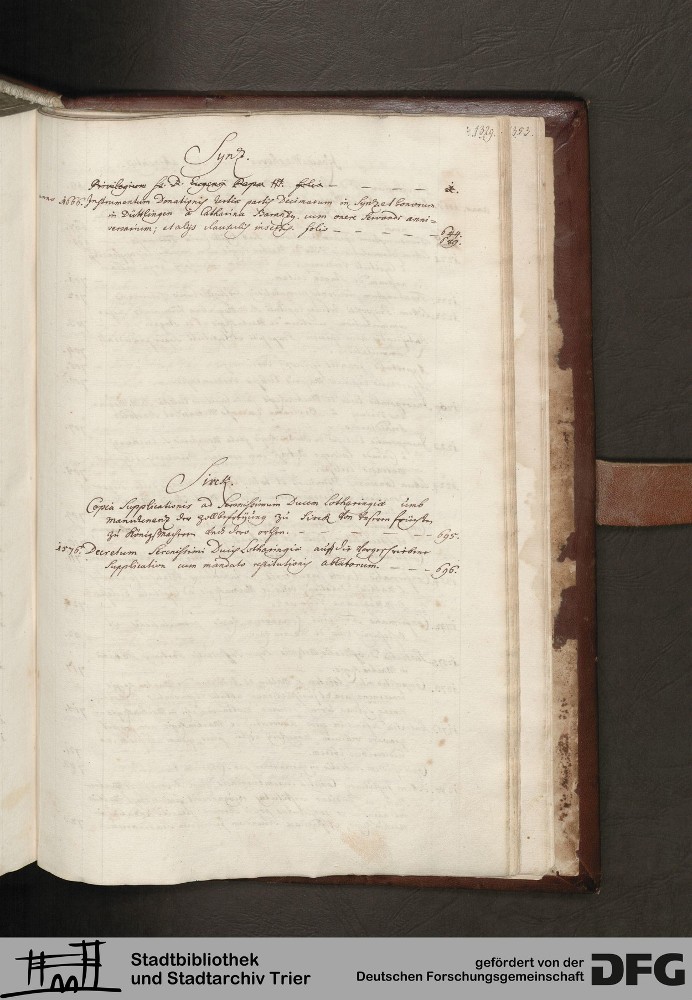 1329. 353.
Synz.
Privilegium S. D. Eugenii Papae III. folio — — — — ii.
anno 1666. Instrumentum Donationis tertiae partis Decimarum in Synz et bonorum
in Düttlingen à Catharina cum onere servandi anni-
versarium; et aliis clausulis insertis folio — — — — — 644.
689.
Sirck.
Copia Supplicationis ad Serenissimum Ducem Lotharingiae umb
manutenenz der Zollbefreyung zu Sirck von Unseren früchten
zu Königs Macheren und dero orthen. — — — — — — 695.
1576. Decretum Serenissimi Ducis Lotharingiae auff die vorgeschriebene
Supplication cum mandato restitutionis ablatorum. — — — — 696.
Stadtbibliothek
und Stadtarchiv Trier
gefördert von der
Deutschen Forschungsgemeinschaft
DFG